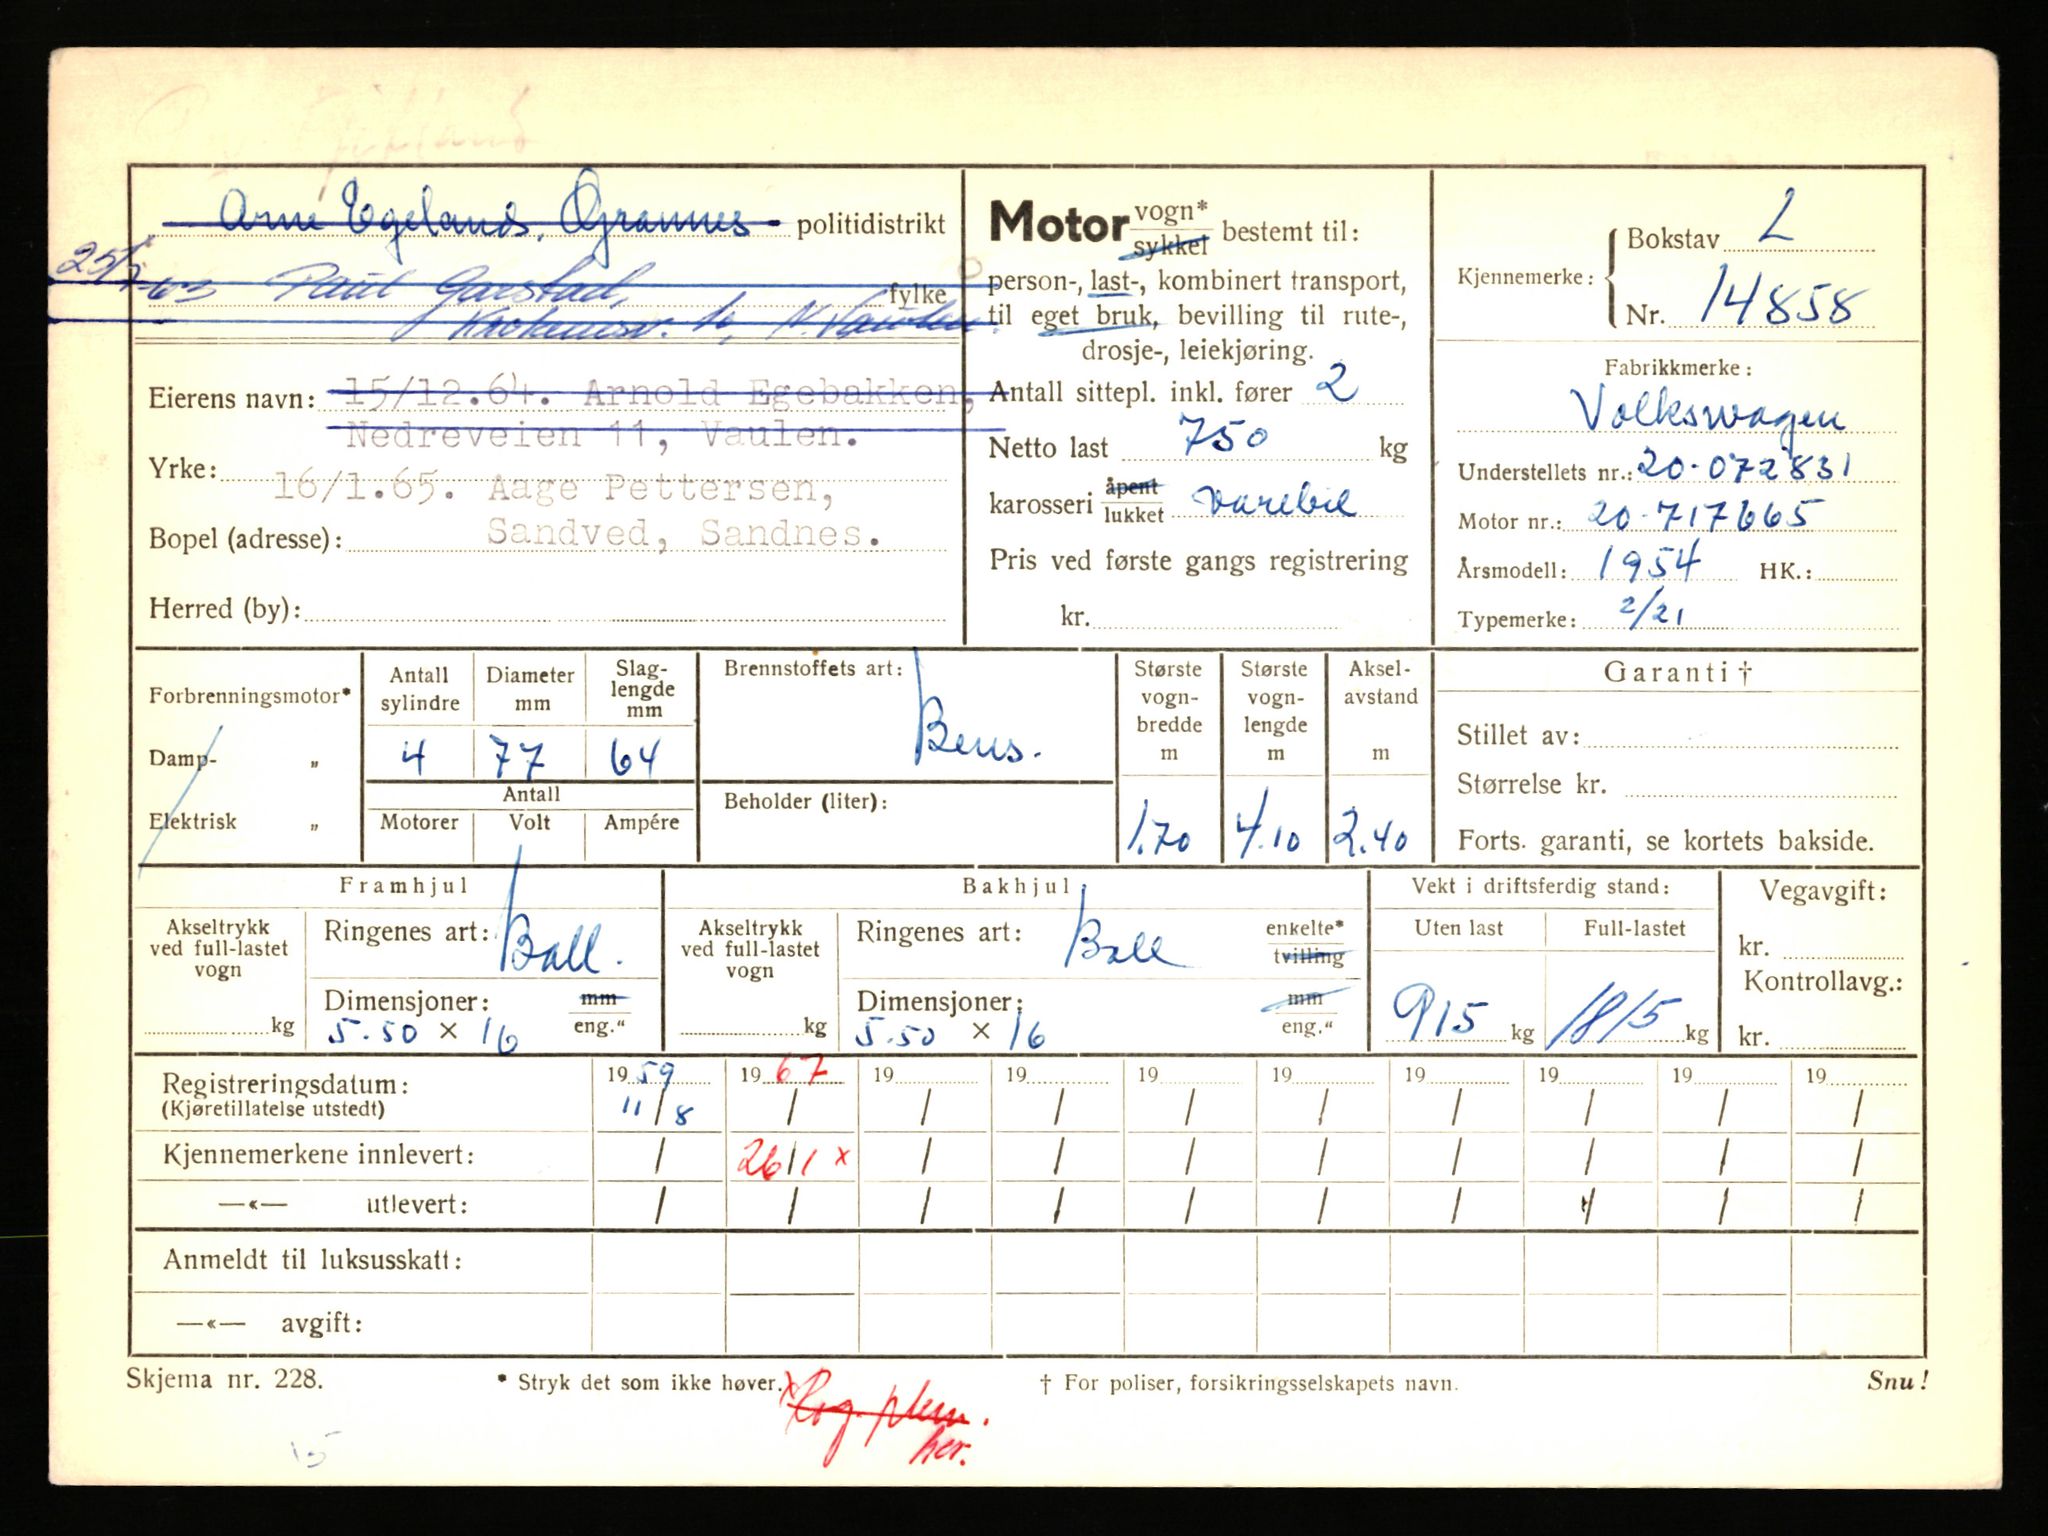 Arne Egeland, Grannes politidistrikt
Paul Garstad, fylke
Eierens navn: 15/12.64. Arnold Egebakken,
Nedreveien 11, Vaulen.
Yrke:
16/1.65. Aage Pettersen,
Bopel (adresse): Sandved, Sandnes.
Herred (by):
Motor vogn* sykkel bestemt til:
person-, last-, kombinert transport,
til eget bruk, bevilling til rute-,
drosje-, leiekjøring.
Antall sittepl. inkl. fører 2
Netto last 750 kg
karosseri åpent lukket varebil
Pris ved første gangs registrering
kr.
Kjennemerke: Bokstav L
Nr. 14858
Fabrikkmerke:
Volkswagen
Understellets nr.: 20-072831
Motor nr.: 20-717665
Årsmodell: 1954 HK.:
Typemerke: 2/21
Forbrenningsmotor*
Damp- „
Elektrisk „
Antall sylindre
4
Diameter mm
77
Slag-lengde mm
64
Antall
Motorer Volt Ampére
Brennstoffets art:
Bens.
Beholder (liter):
Største vogn-bredde m
1.70
Største vogn-lengde m
4.10
Aksel-avstand m
2.40
Garanti †
Stillet av:
Størrelse kr.
Forts. garanti, se kortets bakside.
Framhjul
Akseltrykk ved full-lastet vogn
kg
Ringenes art: Ball.
Dimensjoner: mm
5.50 × 16 eng."
Bakhjul
Akseltrykk ved full-lastet vogn
kg
Ringenes art: Ball enkelte* tvilling
Dimensjoner: mm
5.50 × 16 eng."
Vekt i driftsferdig stand:
Uten last Full-lastet
915 kg 1815 kg
Vegavgift:
kr.
Kontrollavg.:
kr.
Registreringsdatum: 1959 1967 19 19 19 19 19 19 19 19
(Kjøretillatelse utstedt) 11/8 / / / / / / / / /
Kjennemerkene innlevert: / 26/1 x / / / / / / / /
—«— utlevert: / / / / / / / / / /
Anmeldt til luksusskatt:
—«— avgift:
Skjema nr. 228. * Stryk det som ikke høver. † For poliser, forsikringsselskapets navn. Snu!
her.
15